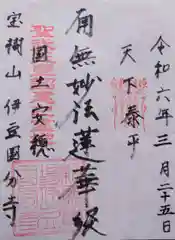 令和六年三月二十五日
天下泰平
南無妙法蓮華経
國土安穏
宝樹山 伊豆國分寺